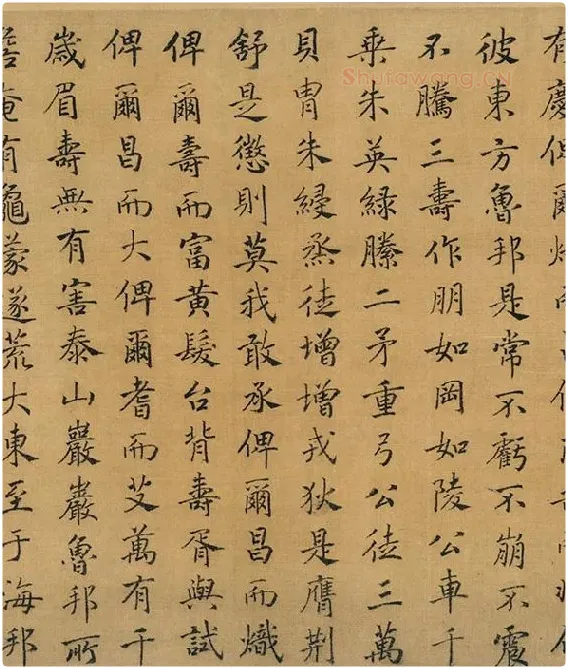 有慶俾爾熾
彼東方魯邦是常不虧不崩不震
不騰三壽作朋如岡如陵公車千
乘朱英綠縢二矛重弓公徒三萬
貝冑朱綅蒸徒增增戎狄是膺荊
舒是懲則莫我敢承俾爾昌而熾
俾爾壽而富黃髮台背壽胥與試
俾爾昌而大俾爾耆而艾萬有千
歲眉壽無有害泰山巖巖魯邦所
詹奄有龜蒙遂荒大東至于海邦
Shufawang.cn